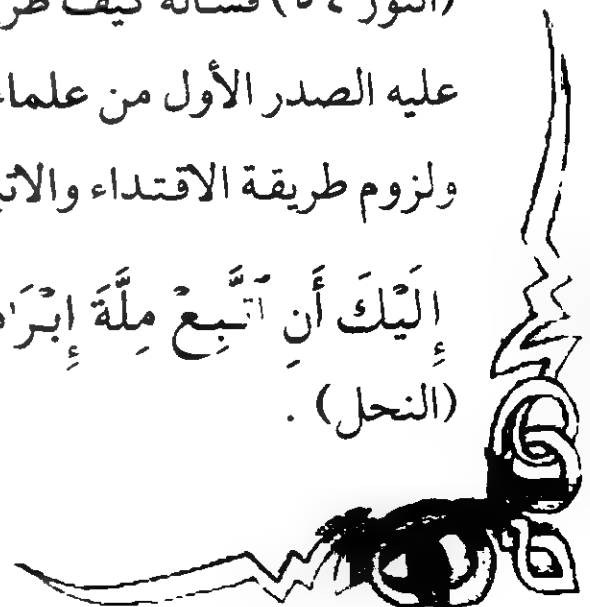 (النور ٥٤) فسأله كيف
عليه الصدر الأول من علماء
ولزوم طريقة الاقتداء
إِلَيْكَ أَنِ ٱتَّبِعْ مِلَّةَ
(النحل) .